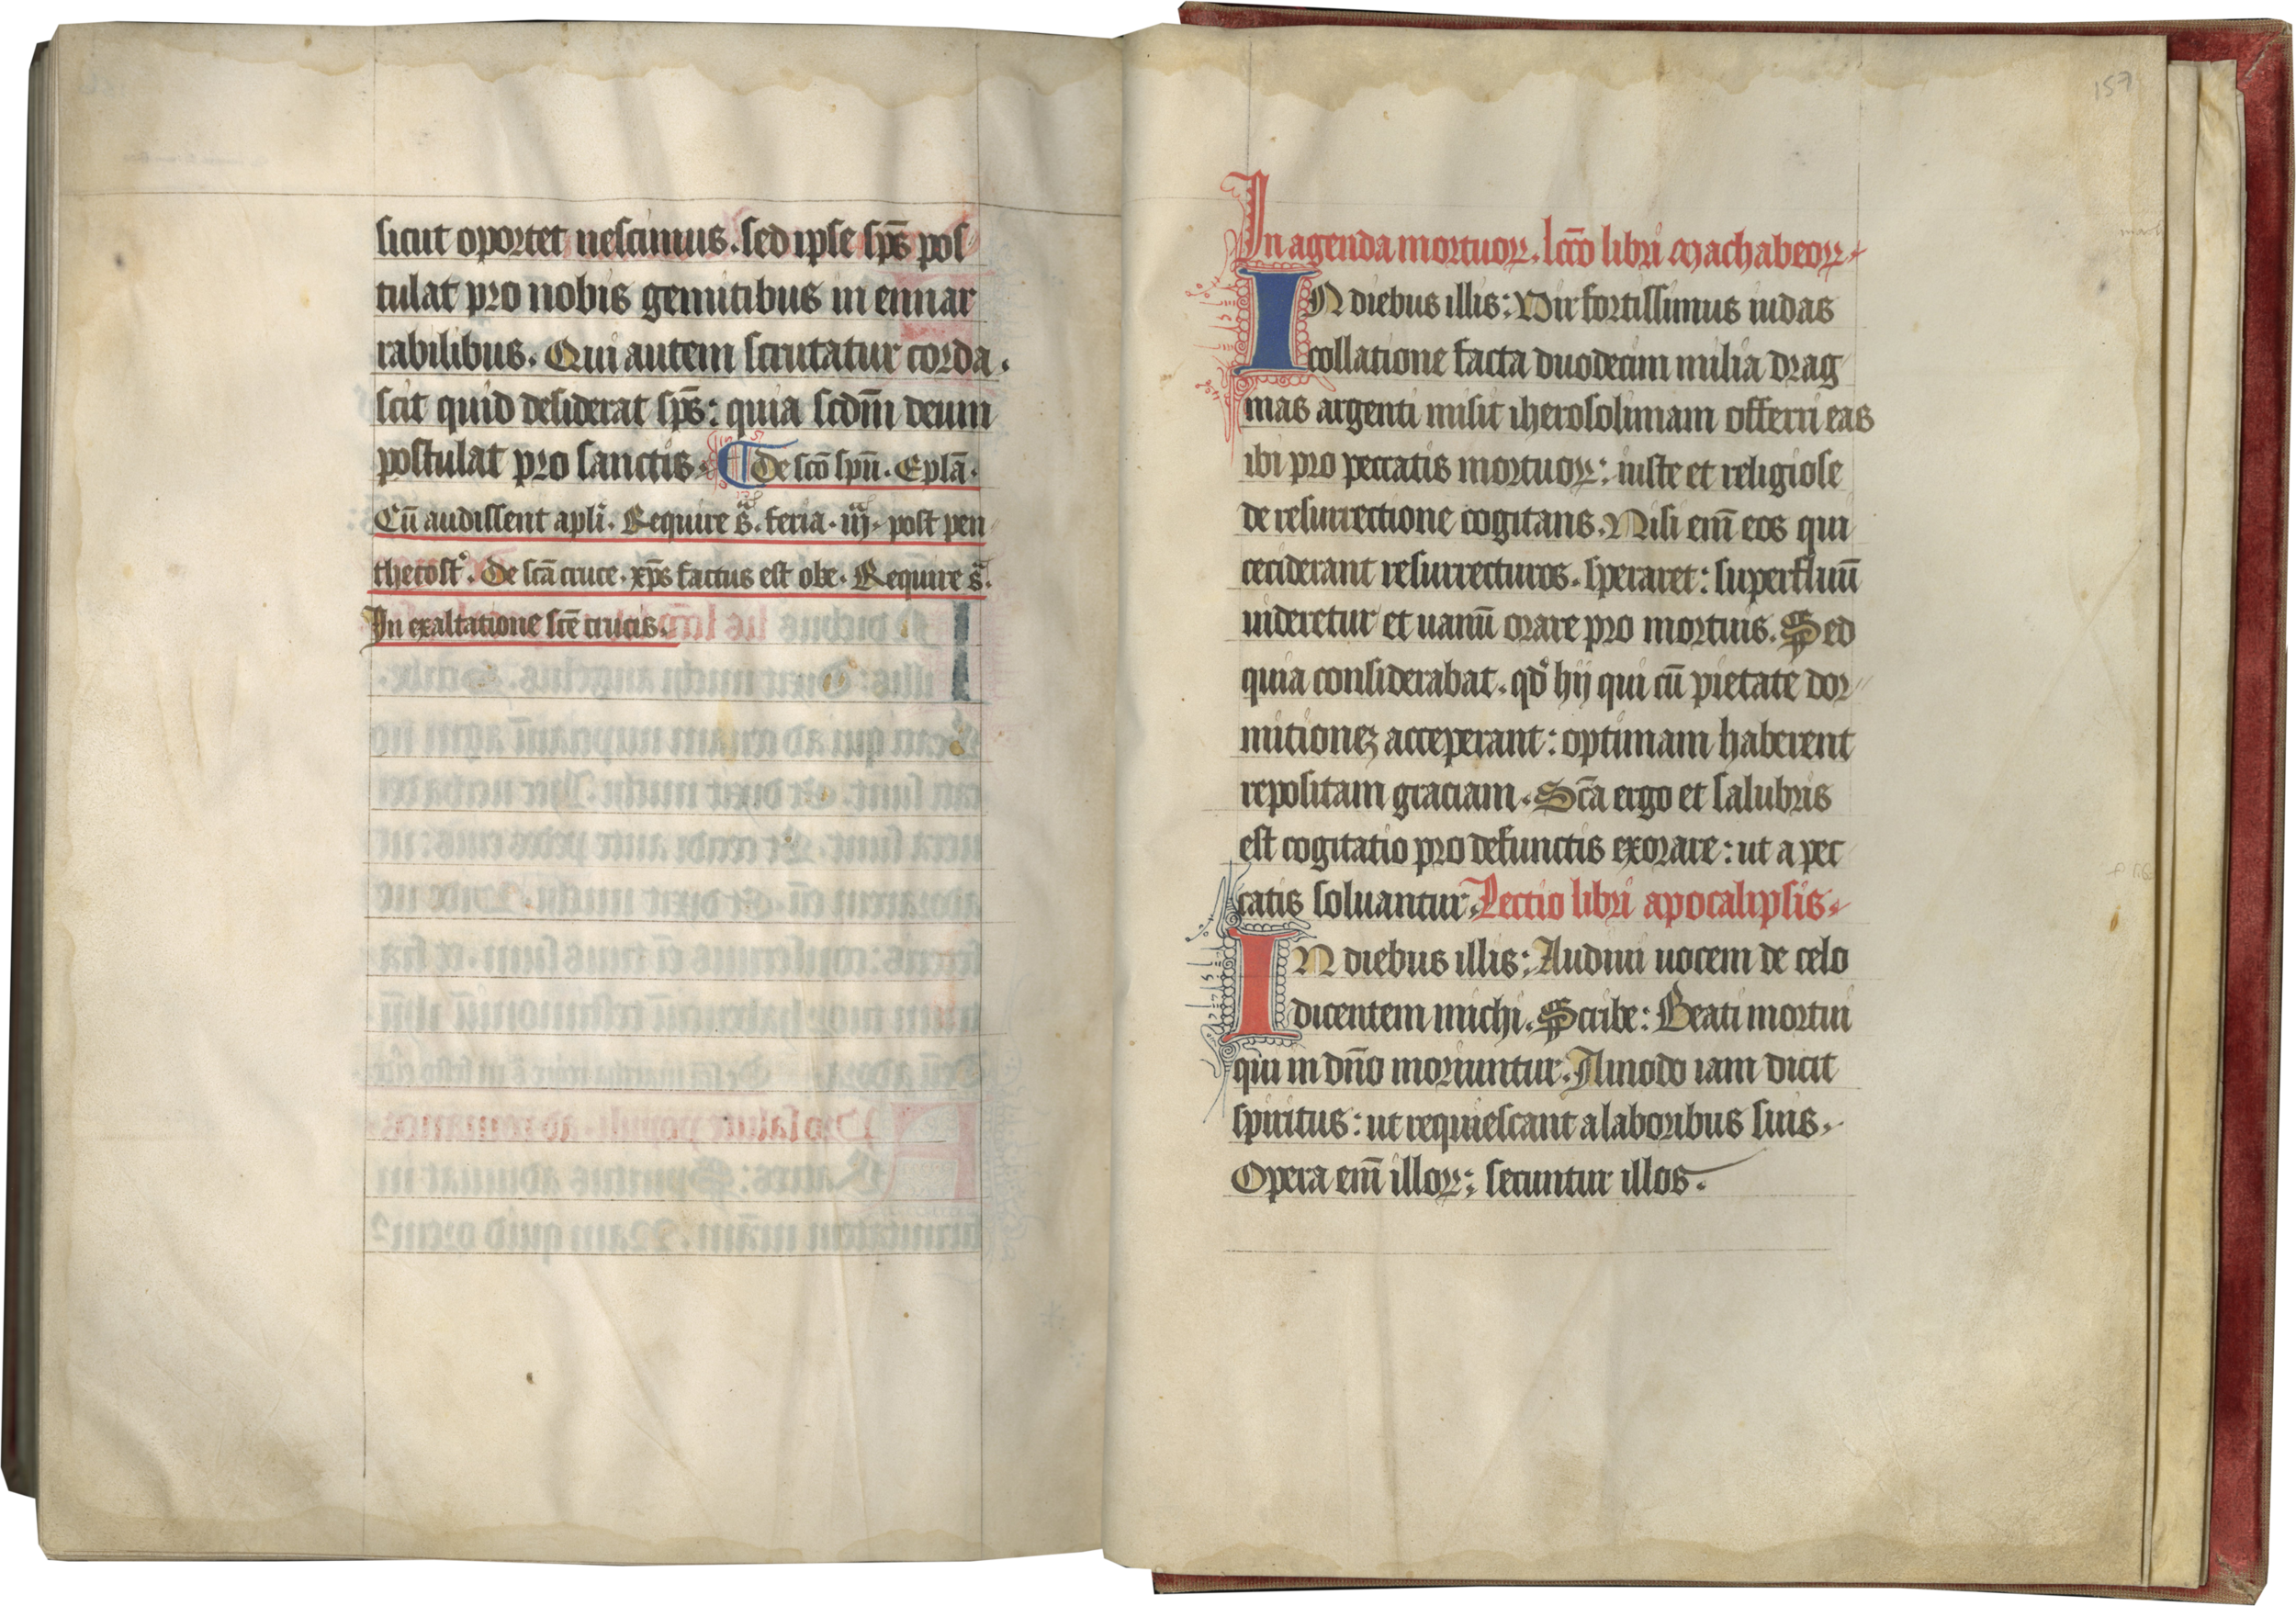 sicut oportet nescimus. sed ipse sp̄s pos
tulat pro nobis gemitibus in ennar
rabilibus. Qui autem scrutatur corda.
scit quid desiderat sp̄s: quia scdm̄ deum
postulat pro sanctis. De scō spū. Eplā.
Cū audissent apli. Require s̄. feria. iij. post pen
thecost. De scā cruce. xp̄s factus est obe. Require s̄.
In exaltatione scē crucis.
157
In agenda mortuoꝝ. lccō libri Machabeoꝝ.
IN diebus illis: Vir fortissimus iudas
collatione facta duodecim milia drag
mas argenti misit iherosolimam offerri eas
ibi pro peccatis mortuoꝝ: iuste et religiose
de resurrectione cogitans. Nisi em̄ eos qui
ceciderant resurrecturos. speraret: superfluū
uideretur et uanū orare pro mortuis. Sed
quia considerabat. qd° hij qui cū pietate dor
mitionēꝫ acceperant: optimam haberent
repositam graciam. Scā ergo et salubris
est cogitatio pro defunctis exorare: ut a pec
catis soluantur. Lectio libri apocalipsis.
IN diebus illis: Audiui uocem de celo
dicentem michi. Scribe: Beati mortui
qui in dn̄o moriuntur. Amodo iam dicit
spiritus: ut requiescant a laboribus suis.
Opera em̄ illoꝝ: secuntur illos.